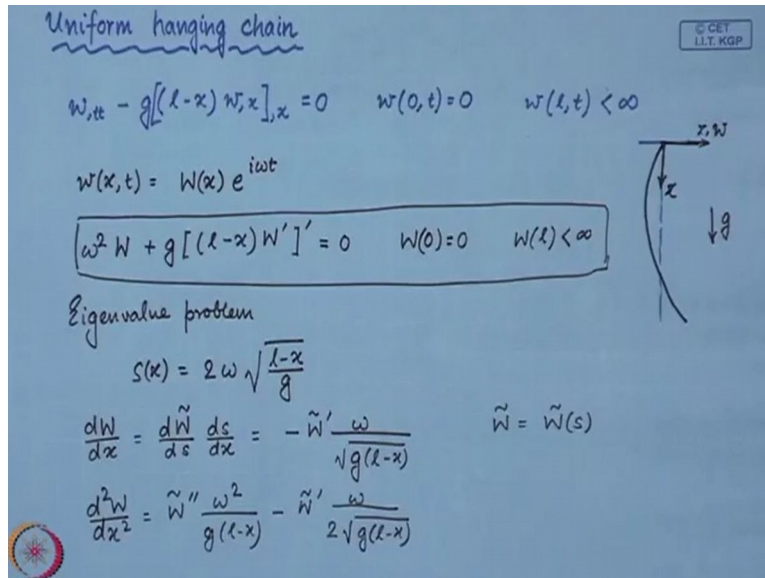 Uniform hanging chain
© CET
I.I.T. KGP
w,tt − g[(l−x) w,x],x = 0 w(0,t)=0 w(l,t) < ∞
z,w
w(x,t) = W(x) e^{iωt}
x
g
ω² W + g[(l−x)W']' = 0 W(0)=0 W(l)<∞
Eigenvalue problem
s(x) = 2ω √((l−x)/g)
dW/dx = dW̃/ds ds/dx = − W̃' ω/√(g(l−x)) W̃ = W̃(s)
d²W/dx² = W̃'' ω²/(g(l−x)) − W̃' ω/(2√(g(l−x)))